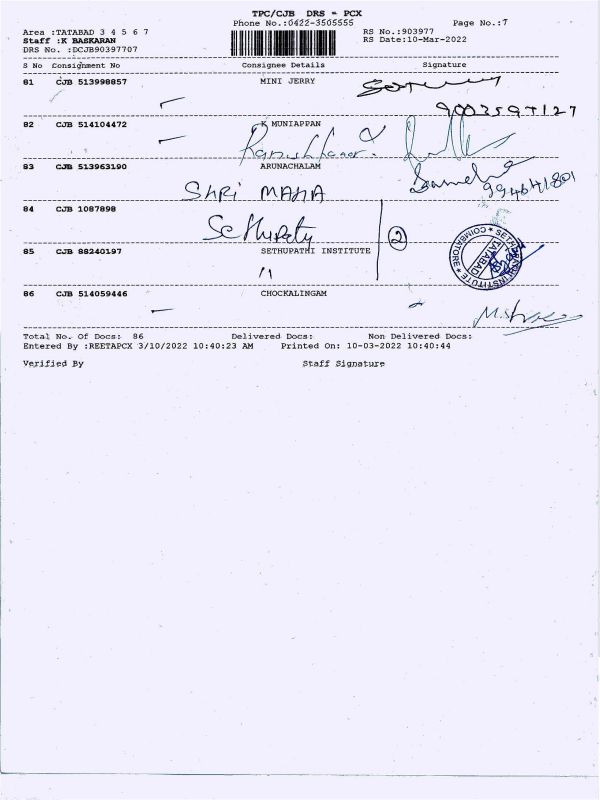 TPC/CJB DRS - PCX
Phone No.:0422-3505555
Page No.:7
Area :TATABAD 3 4 5 6 7
RS No.:903977
Staff :K BASKARAN
RS Date:10-Mar-2022
DRS No. :DCJB90397707
S No Consignment No Consignee Details Signature
81 CJB 513998857 MINI JERRY
82 CJB 514104472 K MUNIAPPAN
83 CJB 513963190 ARUNACHALAM
SHRI MAHA
84 CJB 1087898
Sethupaty
2
85 CJB 88240197 SETHUPATHI INSTITUTE
"
SETHUPATHI INSTITUTE * COIMBATORE *
TATABAD
86 CJB 514059446 CHOCKALINGAM
Total No. Of Docs: 86 Delivered Docs: Non Delivered Docs:
Entered By :REETAPCX 3/10/2022 10:40:23 AM Printed On: 10-03-2022 10:40:44
Verified By Staff Signature